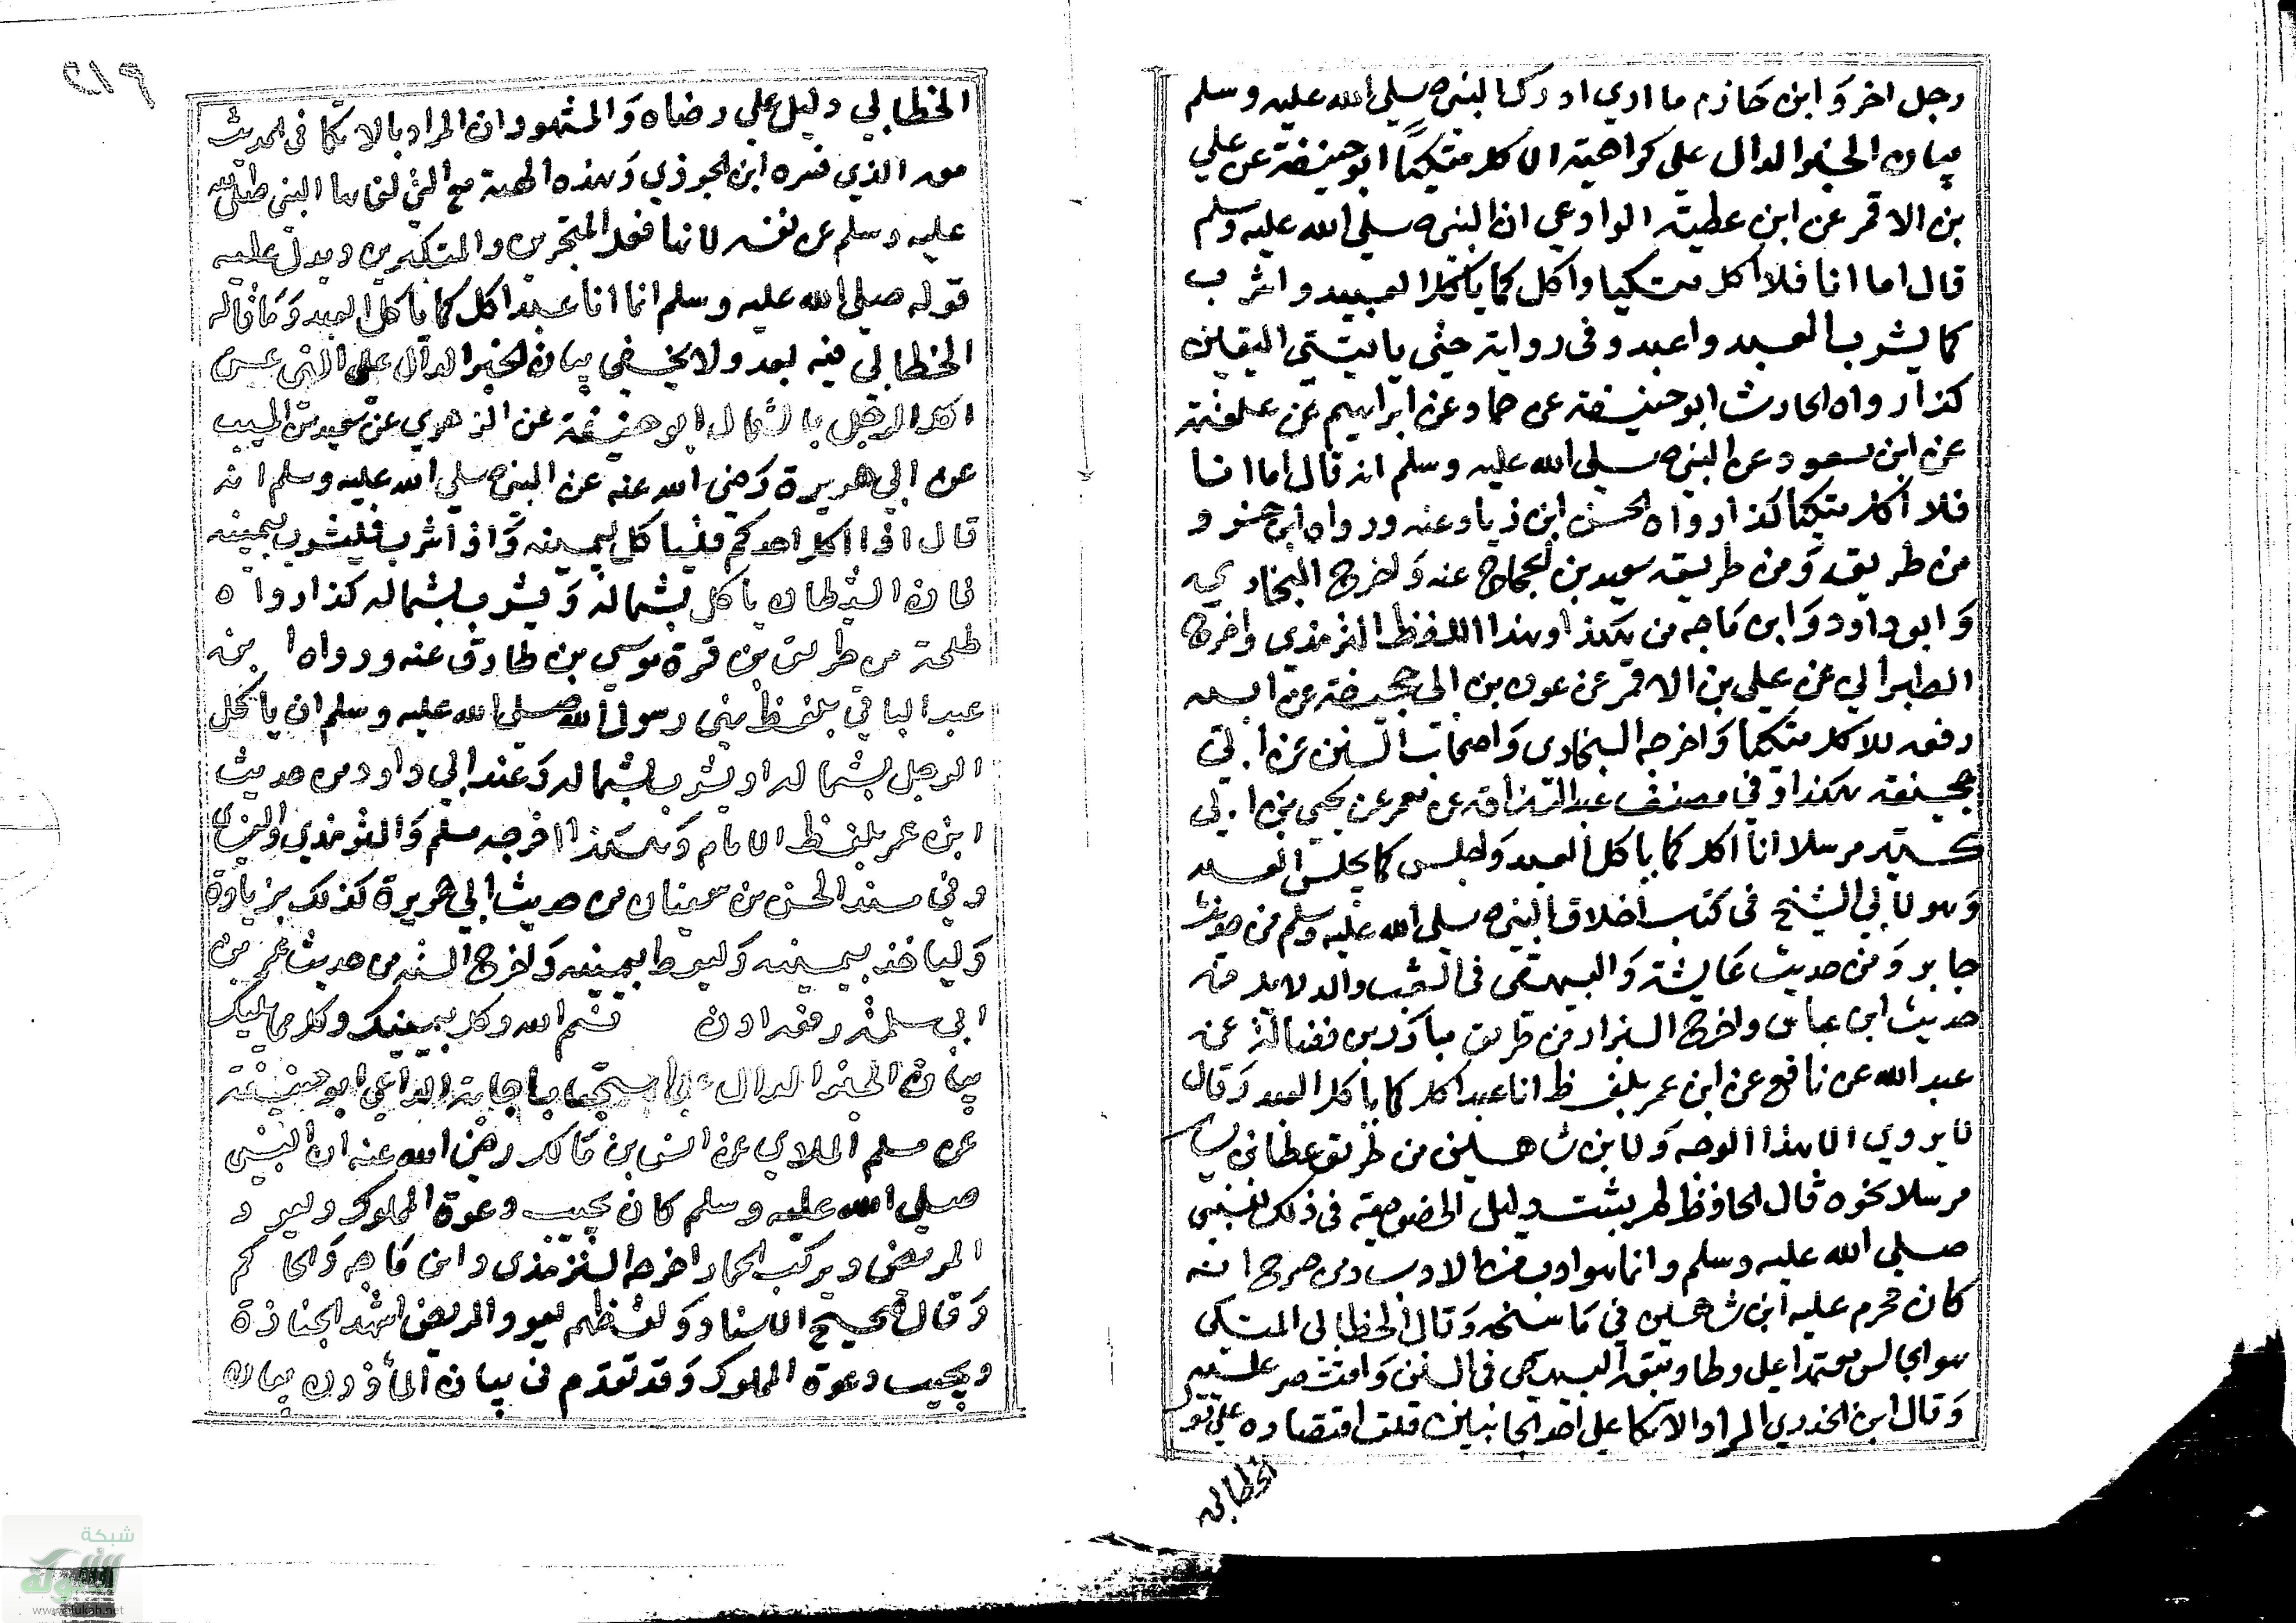 رجل اخر وابن حازم ما اري ادرك النبي صلي الله عليه وسلم
بيان الخبر الدال علي كراهية الاكل متكيًا ابو حنيفة عن علي
بن الاقمر عن ابن عطية الوادعي ان النبي صلي الله عليه وسلم
قال اما انا فلا اكل متكيا واكل كما ياكل العبيد واشرب
كما يشرب العبيد واعبد وفي رواية حتي ياتيني اليقين
كذا رواه الحارث ابو حنيفة عن حماد عن ابراهيم عن علقمة
عن ابن مسعود عن النبي صلي الله عليه وسلم انه قال اما انا
فلا اكل متكيا كذا رواه الحسن ابن زياد عنه ورواه ابن خسرو
من طريقه ومن طريق سعيد بن الحجاج عنه واخرج البخاري
وابو داود وابن ماجه من هكذا وهذا اللفظ الترمذي واخرج
الطبراني عن علي بن الاقمر عن عون بن ابي جحيفة عن ابيه
رفعه لا اكل متكيا واخرجه البخاري واصحاب السنن عن ابي
جحيفة هكذا وفي مصنف عبد الرزاق عن معمر عن يحيي بن ابي
كثير مرسلا انا اكل كما ياكل العبد واجلس كما يجلس العبد
وهو لابي الشيخ في كتاب اخلاق النبي صلي الله عليه وسلم من حديث
جابر ومن حديث عايشة والبيهقي في الشعب والدلايل من
حديث ابن عباس واخرج البزار من طريق مبارك بن فضالة عن
عبد الله عن نافع عن ابن عمر بلفظ انا عبد اكل كما ياكل العبد وقال
لا يروي الا بهذا الوجه ولابن شاهين من طريق عطا بن
مرسلا نحوه قال الحافظ لم يثبت دليل الخصوصية في ذلك للنبي
صلي الله عليه وسلم وانما هو ادب من الادب ومن صرح انه
كان محرم عليه ابن شاهين في ناسخه وقال الخطابي المتكي
هو الجالس معتمدا علي وطا وتبعه البيهقي في السنن واقتصر عليه
وقال ابن الجوزي المراد الاتكا علي احد الجانبين قلت اقتصاره علي قو
الخطابي
٢١٩
الخطابي دليل علي رضاه والمشهور ان المراد بالاتكا في الحديث
هو الذي فسره ابن الجوزي وهذه الهيئة هي التي نفي بها النبي صلي الله
عليه وسلم عن نفسه لانها فعل المتجبرين والمتكبرين ويدل عليه
قوله صلي الله عليه وسلم انما انا عبد اكل كما ياكل العبد وما قاله
الخطابي فيه بعد ولا يخفي بيان الخبر الدال علي النهي عن
اكل الرجل بالشمال ابو حنيفة عن الزهري عن سعيد بن المسيب
عن ابي هريرة رضي الله عنه عن النبي صلي الله عليه وسلم انه
قال اذا اكل احدكم فلياكل بيمينه واذا شرب فليشرب بيمينه
فان الشيطان ياكل بشماله ويشرب بشماله كذا رواه
طلحة من طريق بن قرة موسي بن طارق عنه ورواه ابن
عبد الباقي بلفظ نهي رسول الله صلي الله عليه وسلم ان ياكل
الرجل بشماله او يشرب بشماله وعند ابي داود من حديث
ابن عمر بلفظ الامام وهكذا اخرجه مسلم والترمذي والنسائي
وفي مسند الحسن بن سفيان من حديث ابي هريرة كذلك بزيادة
ولياخذ بيمينه وليعط بيمينه واخرج الستة من حديث عمر بن
ابي سلمة رفعه ادن سم الله وكل بيمينك وكل مما يليك
بيان الخبر الدال علي استحباب اجابة الداعي ابو حنيفة
عن مسلم الملاي عن انس بن مالك رضي الله عنه ان النبي
صلي الله عليه وسلم كان يجيب دعوة المملوك ويعود
المريض ويركب الحمار اخرجه الترمذي وابن ماجه والحاكم
وقال صحيح الاسناد ولفظهم يعود المريض ويشهد الجنازة
ويجيب دعوة المملوك وقد تقدم في بيان الماذون بيان
شبكة
الألوكة
www.alukah.net